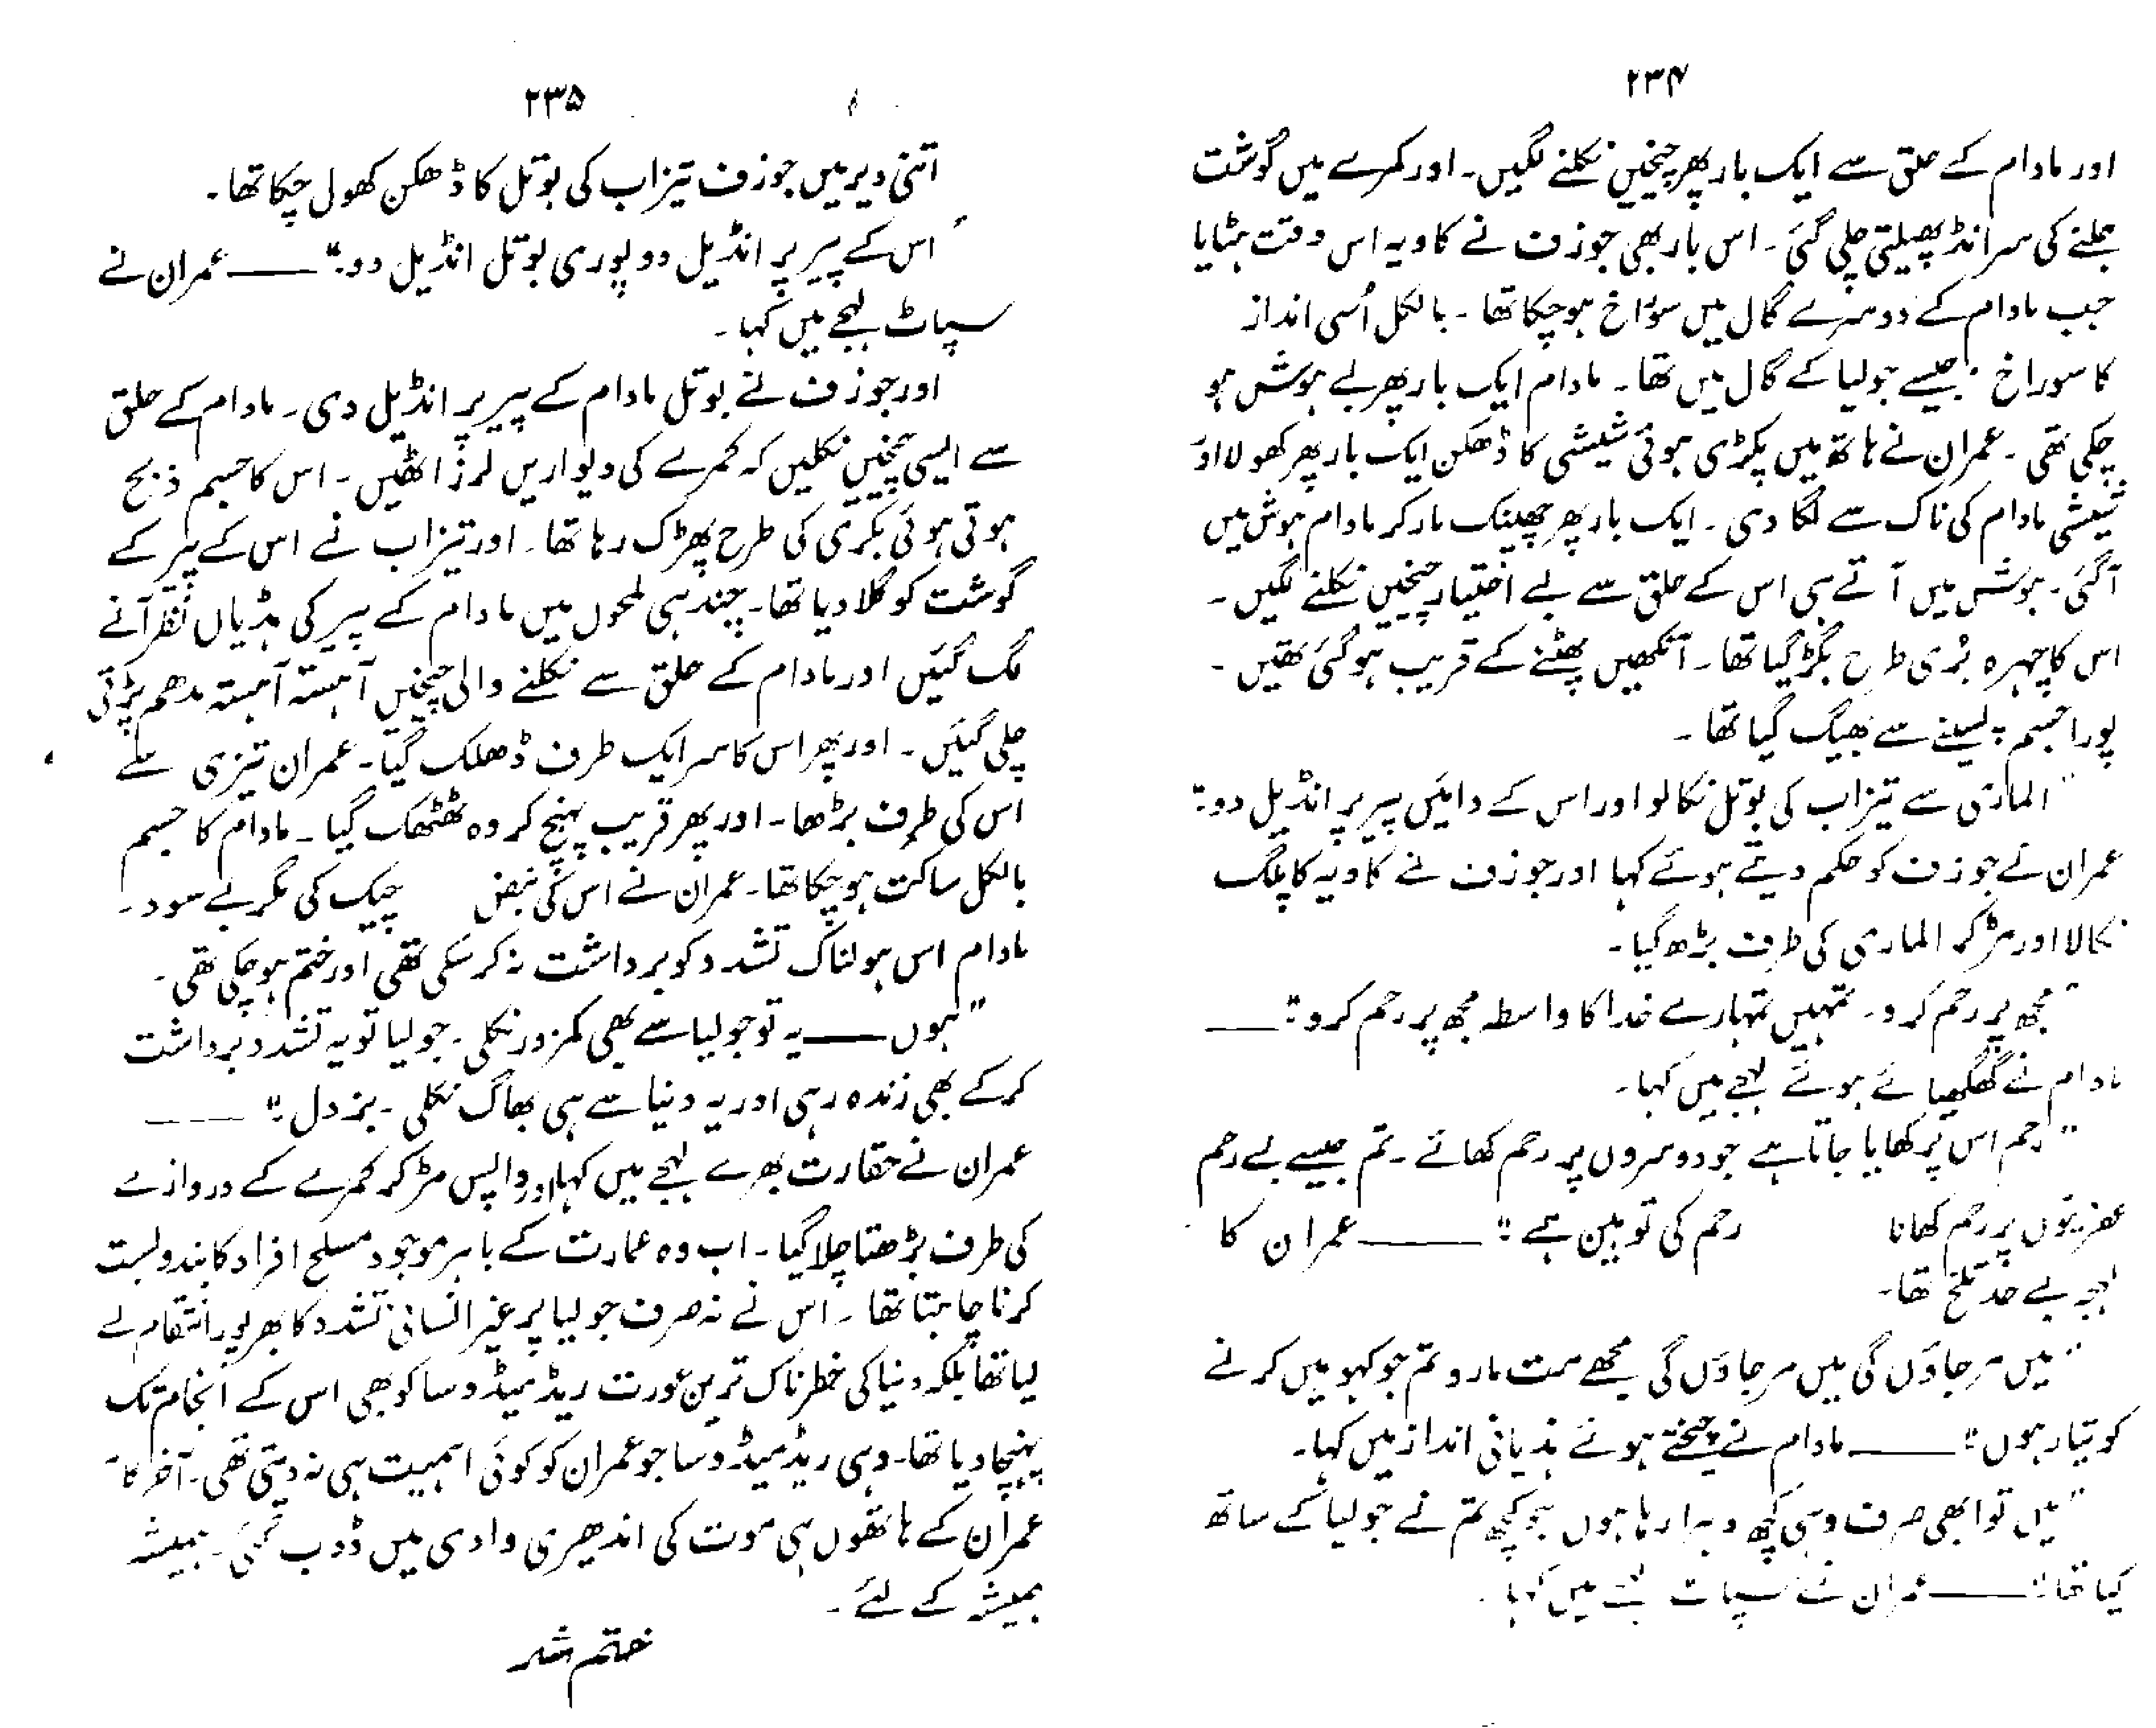 ۲۳۴
اور مادام کے حلق سے ایک بار پھر چیخیں نکلنے لگیں۔ اور کمرے میں گوشت
جلنے کی سرانڈ پھیلتی چلی گئی۔ اس بار بھی جوزف نے کاویہ اس وقت ہٹایا
جب مادام کے دوسرے گال میں سوراخ ہو چکا تھا۔ بالکل اُسی انداز
کا سوراخ جیسے جولیا کے گال میں تھا۔ مادام ایک بار پھر بے ہوش ہو
چکی تھی۔ عمران نے ہاتھ میں پکڑی ہوئی شیشی کا ڈھکن ایک بار پھر کھولا اور
شیشی مادام کی ناک سے لگا دی۔ ایک بار پھر چھینک مار کر مادام ہوش میں
آ گئی۔ ہوش میں آتے ہی اس کے حلق سے بے اختیار چیخیں نکلنے لگیں۔
اس کا چہرہ بُری طرح بگڑ گیا تھا۔ آنکھیں پھٹنے کے قریب ہو گئی تھیں۔
پورا جسم پسینے سے بھیگ گیا تھا۔
"الماری سے تیزاب کی بوتل نکالو اور اس کے دائیں پیر پر انڈیل دو۔"
عمران نے جوزف کو حکم دیتے ہوئے کہا اور جوزف نے کاویہ کا پلگ
نکالا اور مڑ کر الماری کی طرف بڑھ گیا۔
"مجھ پر رحم کرو۔ تمہیں تمہارے خدا کا واسطہ مجھ پر رحم کرو۔" ——
مادام نے گھگھیائے ہوئے لہجے میں کہا۔
"رحم اس پر کھایا جاتا ہے جو دوسروں پر رحم کھائے۔ تم جیسے بے رحم
عفریتوں پر رحم کھانا رحم کی توہین ہے۔" —— عمران کا
لہجہ بے حد تلخ تھا۔
"میں مر جاؤں گی میں مر جاؤں گی مجھے مت مارو تم جو کہو میں کرنے
کو تیار ہوں۔" —— مادام نے چیختے ہوئے ہذیانی انداز میں کہا۔
"میں تو ابھی صرف وہی کچھ دہرا رہا ہوں جو کچھ تم نے جولیا کے ساتھ
کیا تھا۔" —— عمران نے سپاٹ لہجے میں کہا۔
۲۳۵
اتنی دیر میں جوزف تیزاب کی بوتل کا ڈھکن کھول چکا تھا۔
"اس کے پیر پر انڈیل دو پوری بوتل انڈیل دو۔" —— عمران نے
سپاٹ لہجے میں کہا۔
اور جوزف نے بوتل مادام کے پیر پر انڈیل دی۔ مادام کے حلق
سے ایسی چیخیں نکلیں کہ کمرے کی دیواریں لرز اٹھیں۔ اس کا جسم ذبح
ہوتی ہوئی بکری کی طرح پھڑک رہا تھا۔ اور تیزاب نے اس کے پیر کے
گوشت کو گلا دیا تھا۔ چند ہی لمحوں میں مادام کے پیر کی ہڈیاں نظر آنے
لگ گئیں اور مادام کے حلق سے نکلنے والی چیخیں آہستہ آہستہ مدھم پڑتی
چلی گئیں۔ اور پھر اس کا سر ایک طرف ڈھلک گیا۔ عمران تیزی سے
اس کی طرف بڑھا۔ اور پھر قریب پہنچ کر وہ ٹھٹھک گیا۔ مادام کا جسم
بالکل ساکت ہو چکا تھا۔ عمران نے اس کی نبض چیک کی مگر بے سود۔
مادام اس ہولناک تشدد کو برداشت نہ کر سکی تھی اور ختم ہو چکی تھی۔
"ہوں —— یہ تو جولیا سے بھی کمزور نکلی۔ جولیا تو یہ تشدد برداشت
کر کے بھی زندہ رہی اور یہ دنیا سے ہی بھاگ نکلی۔ بزدل۔" ——
عمران نے حقارت بھرے لہجے میں کہا اور واپس مڑ کر کمرے کے دروازے
کی طرف بڑھتا چلا گیا۔ اب وہ عمارت کے باہر موجود مسلح افراد کا بندوبست
کرنا چاہتا تھا۔ اس نے نہ صرف جولیا پر غیر انسانی تشدد کا بھرپور انتقام لے
لیا تھا بلکہ دنیا کی خطرناک ترین عورت ریڈ میڈوسا کو بھی اس کے انجام تک
پہنچا دیا تھا۔ وہی ریڈ میڈوسا جو عمران کو کوئی اہمیت ہی نہ دیتی تھی۔ آخر کار
عمران کے ہاتھوں ہی موت کی اندھیری وادی میں ڈوب گئی۔ ہمیشہ
ہمیشہ کے لئے۔
ختم شد